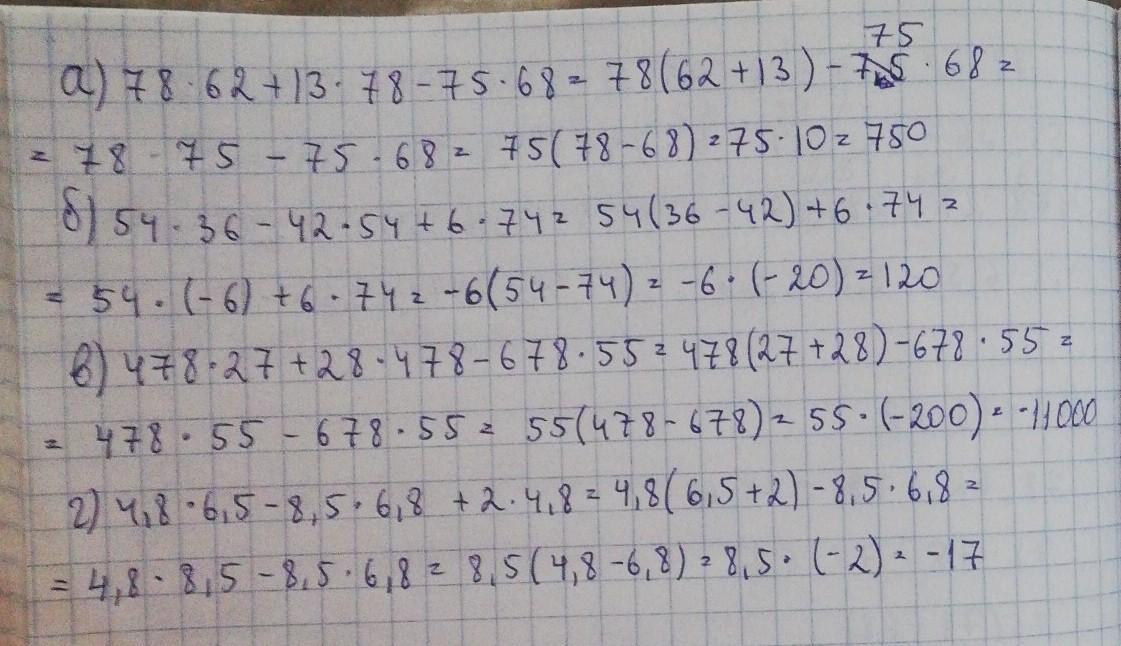 75
а) 78 · 62 + 13 · 78 - 75 · 68 = 78(62 + 13) - 75 · 68 =
= 78 · 75 - 75 · 68 = 75(78 - 68) = 75 · 10 = 750
б) 54 · 36 - 42 · 54 + 6 · 74 = 54(36 - 42) + 6 · 74 =
= 54 · (-6) + 6 · 74 = -6(54 - 74) = -6 · (-20) = 120
в) 478 · 27 + 28 · 478 - 678 · 55 = 478(27 + 28) - 678 · 55 =
= 478 · 55 - 678 · 55 = 55(478 - 678) = 55 · (-200) = -11000
г) 4,8 · 6,5 - 8,5 · 6,8 + 2 · 4,8 = 4,8(6,5 + 2) - 8,5 · 6,8 =
= 4,8 · 8,5 - 8,5 · 6,8 = 8,5(4,8 - 6,8) = 8,5 · (-2) = -17